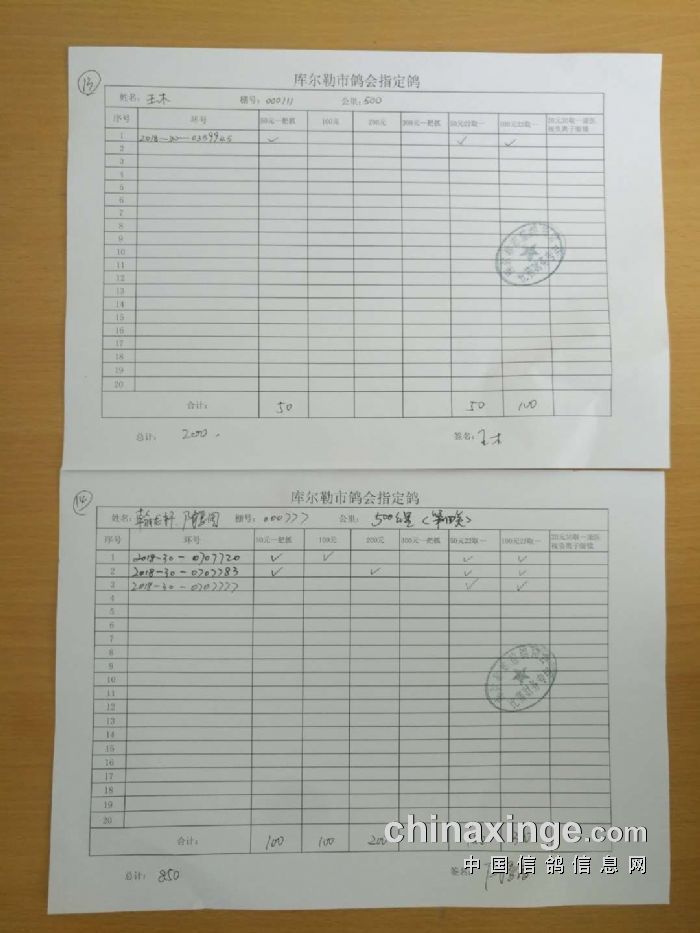 13
库尔勒市鸽会指定鸽
姓名：王木 棚号：000111 公里：500
序号 环号 50元一把抓 100元 200元 300元一把抓 50元22取一 100元22取一
1 2018-30-0359945 ✓ ✓ ✓
2
3
4
5
6
7
8
9
10
11
12
13
14
15
16
17
18
19
20
合计： 50 50 100
总计： 200 签名：王木
14
库尔勒市鸽会指定鸽
姓名： 棚号：000777 公里：500公里
序号 环号 50元一把抓 100元 200元 300元一把抓 50元22取一 100元22取一
1 2018-30-0707720 ✓ ✓ ✓ ✓
2 2018-30-0707783 ✓ ✓ ✓ ✓
3 2018-30-0707777 ✓ ✓
4
5
6
7
8
9
10
11
12
13
14
15
16
17
18
19
20
合计： 100 100 200
总计： 850 签名：
chinaxinge.com
中国信鸽信息网